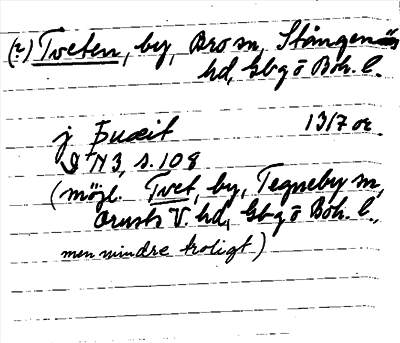 (?) Tveten, by, Bro sn, Stångenäs
hd, Gbg o Boh. l.
j Þueit 1317 or.
DN 3, s. 108
(möjl. Tvet, by, Tegneby sn,
Orusts V. hd, Gbg o Boh. l.,
men mindre troligt)